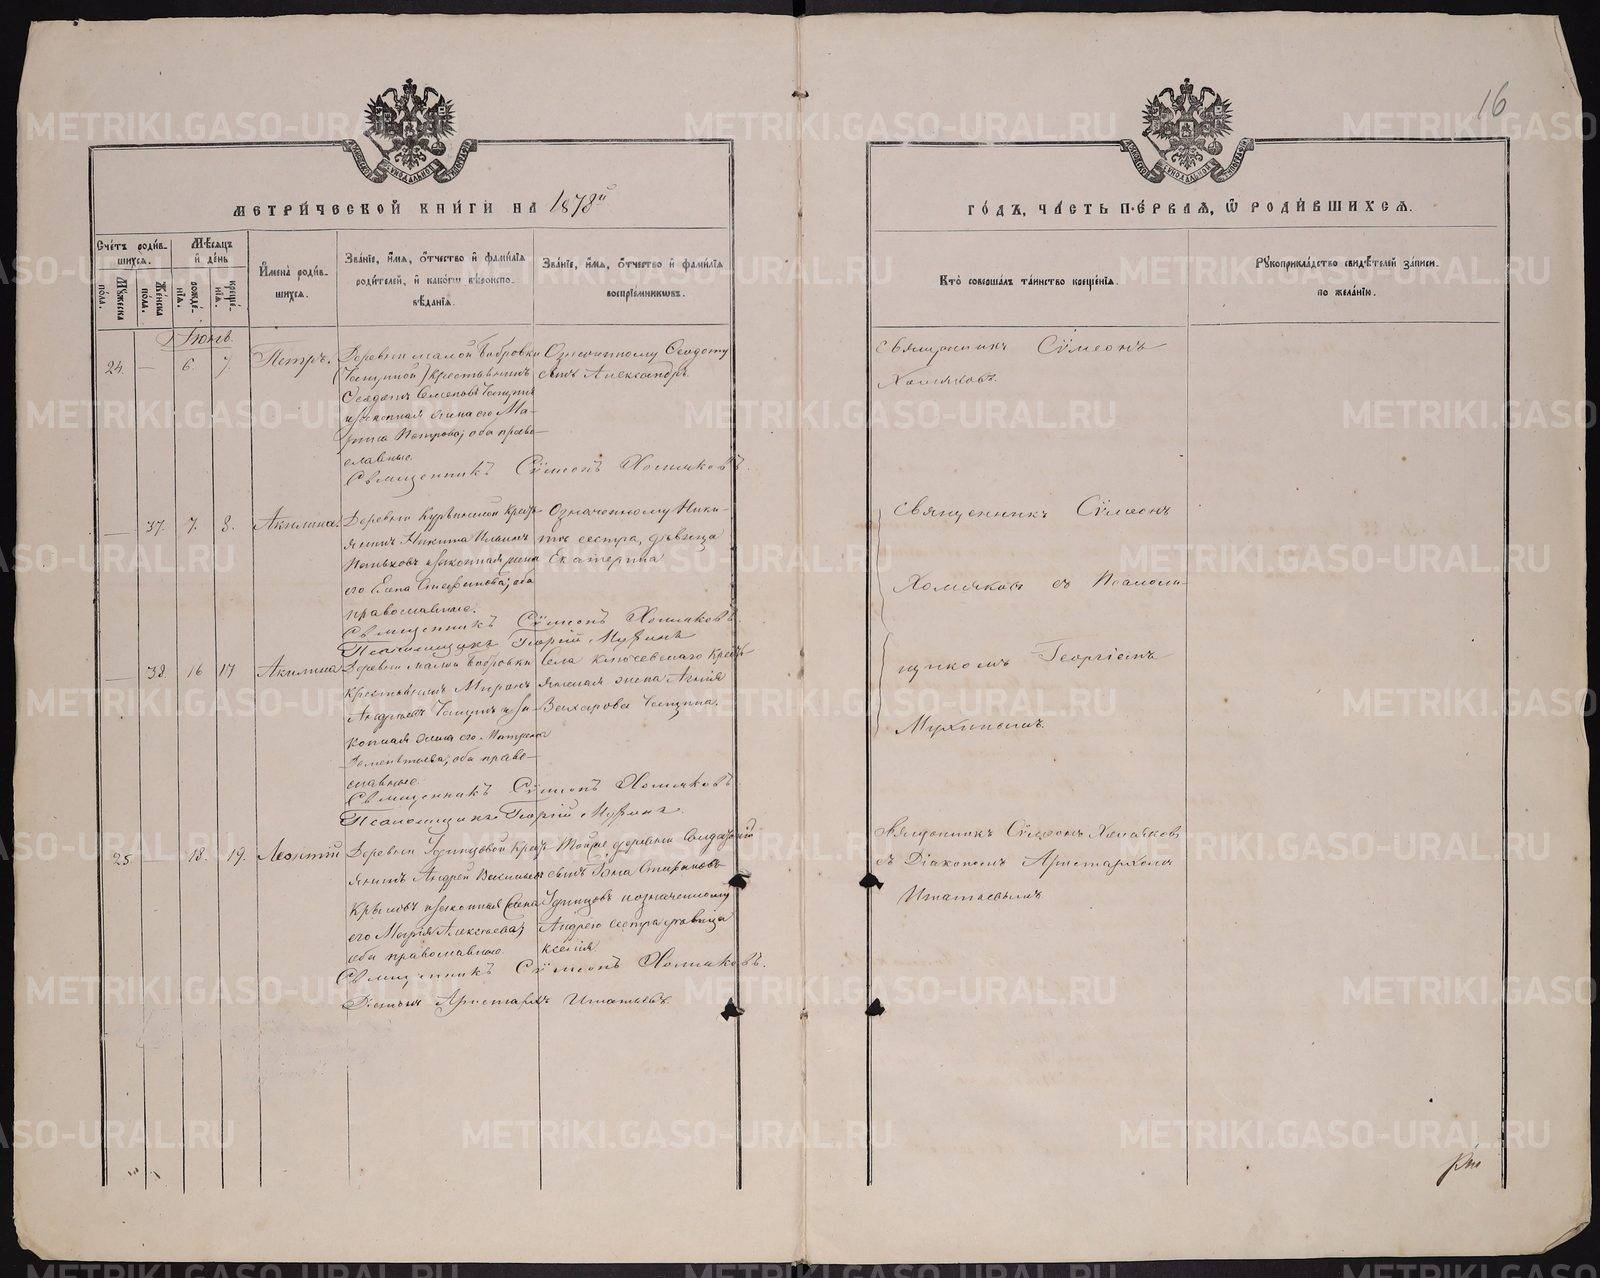 16
МЕТРИЧЕСКОЙ КНИГИ НА 1878й
ГОДЪ, ЧАСТЬ ПЕРВАЯ, Ѡ РОДИВШИХСЯ.
Счетъ родив-
шихся.
Мужеска пола.
Женска пола.
Мѣсяцъ и день
рожде-
нїя.
креще-
нїя.
Имена родив-
шихся.
Званїе, имя, отчество и фамилїя
родителей, и какогѡ вѣроиспо-
вѣданїя.
Званїе, имя, отчество и фамилїя
воспрїемникѡвъ.
Кто совершалъ таинство крещенїя.
Рукоприкладство свидѣтелей записи
по желанїю.
Іюнь.
24. — 6. 7. Петръ.
Деревни малой Бобровки
крестьянинъ
законная жена его Ма-
Петрова; оба право-
славные.
Священникъ Сѵмеонъ Хомяковъ.
Означенному Ѳеодоту
сынъ Александръ.
Священникъ Сѵмеонъ
Хомяковъ.
— 37. 7. 8. Акилина.
Деревни Кресть-
янинъ Никита Ильинъ
Паньковъ и законная жена
его Елена Стефанова; оба
православные.
Священникъ Сѵмеонъ Хомяковъ.
Псаломщикъ Георгій Мухинъ
Означенному Ники-
тѣ сестра, дѣвица
Екатерина
Священникъ Сѵмеонъ
Хомяковъ съ Псалом-
щикомъ Георгіемъ
Мухинымъ.
— 38. 16 17 Акилина
Деревни малой Бобровки
крестьянинъ Миронъ
Андреевъ и за-
конная жена его Матрена
Дементьева; оба право-
славные.
Священникъ Сѵмеонъ Хомяковъ
Псаломщикъ Георгій Мухинъ.
Села Ключевскаго Кресть-
янская жена Агнія
Захарова
25 — 18. 19. Леонтій
Деревни Кресть-
янинъ Андрей Васильевъ
Крыловъ и законная жена
его Марія Алексѣева;
оба православные.
Священникъ Сѵмеонъ Хомяковъ.
Діаконъ Аристархъ Игнатьевъ.
Тойже деревни
сынъ
и означенному
Андрею сестра дѣвица
Ксенія.
Священникъ Сѵмеонъ Хомяковъ
съ Діакономъ Аристархомъ
Игнатьевымъ.
METRIKI.GASO-URAL.RU